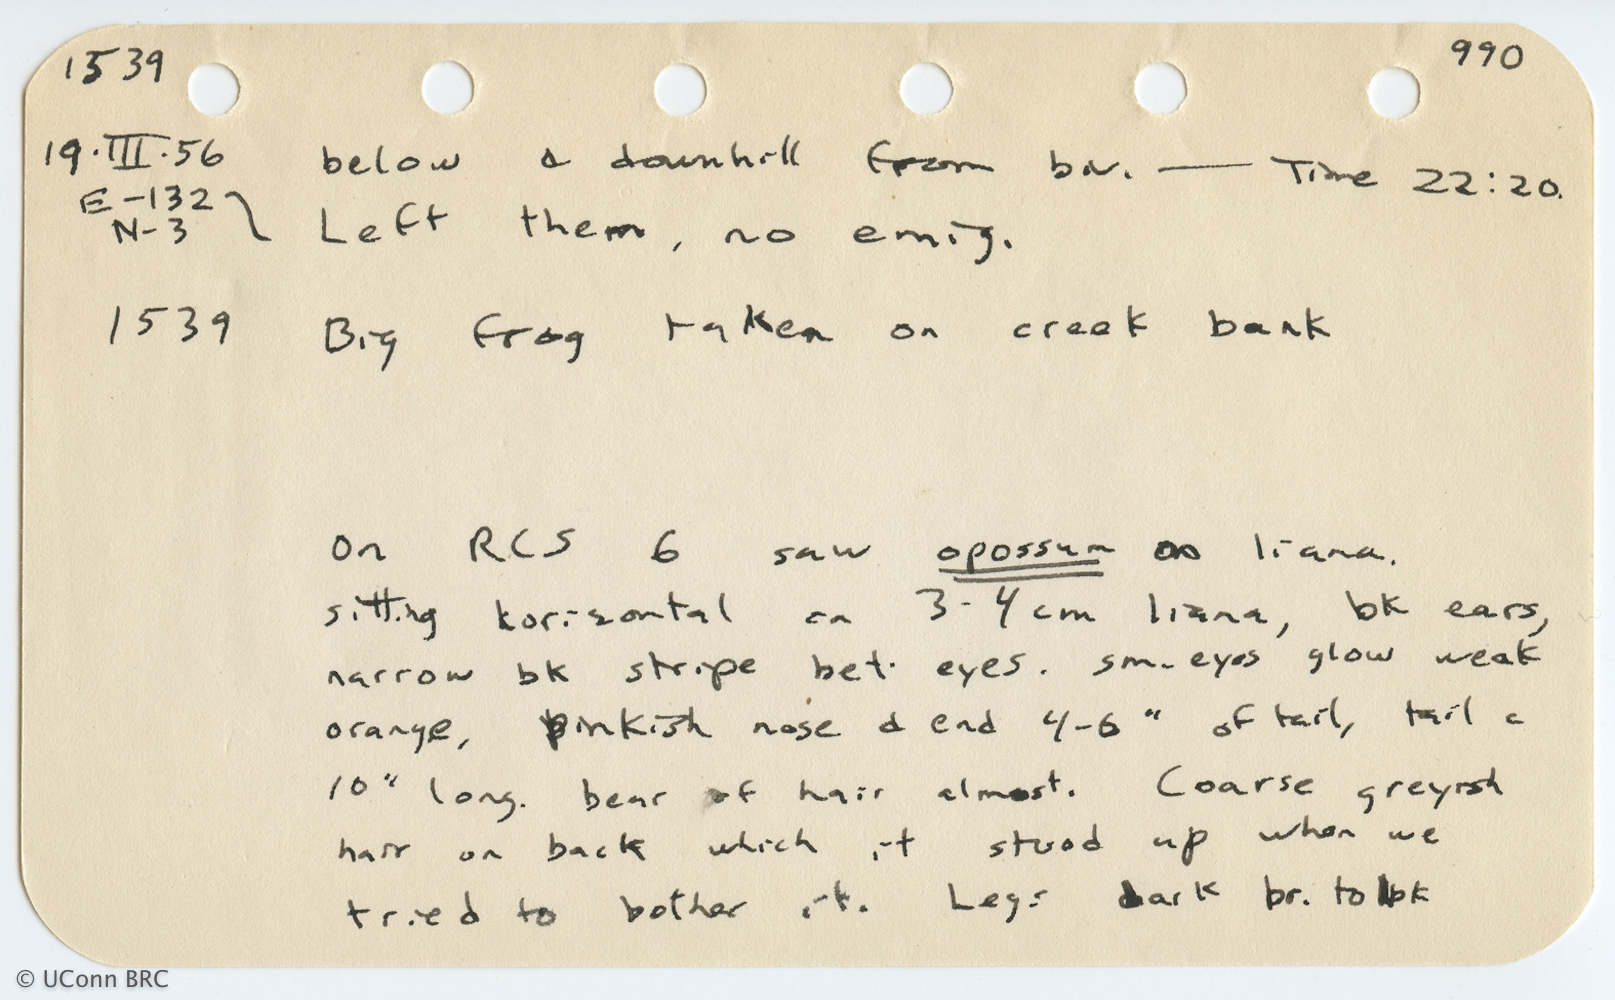 1539 990
19.III.56 below & downhill from biv. — Time 22:20.
E-132
N-3 Left them, no emig.
1539 Big frog taken on creek bank
On RCS 6 saw opossum on liana.
sitting horizontal on 3-4 cm liana, bk ears,
narrow bk stripe bet. eyes. sm. eyes glow weak
orange, pinkish nose & end 4-6" of tail, tail c
10" long. bear of hair almost. Coarse greyish
hair on back which it stood up when we
tried to bother it. Legs dark br. to bk
© UConn BRC